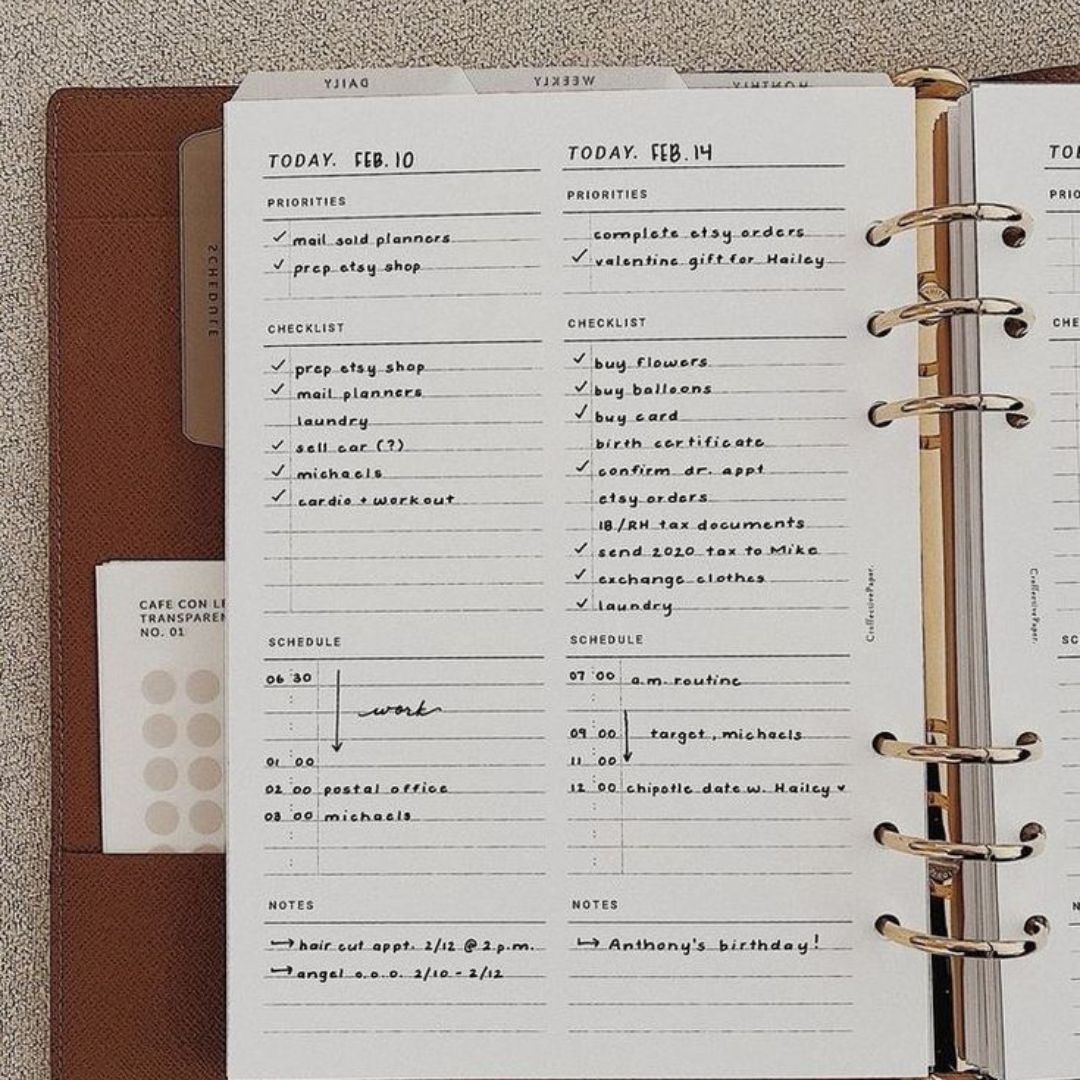 DAILY
WEEKLY
MONTHLY
SCHEDULE
CAFE CON
TRANSPAREN
NO. 01
TODAY. FEB. 10
PRIORITIES
✓ mail sold planners
✓ prep etsy shop
CHECKLIST
✓ prep etsy shop
✓ mail planners
laundry
✓ sell car (?)
✓ michaels
✓ cardio + workout
SCHEDULE
06:30
work
01:00
02:00 postal office
03:00 michaels
NOTES
↪ hair cut appt. 2/12 @ 2 p.m.
↪ angel o.o.o. 2/10 - 2/12
TODAY. FEB. 14
PRIORITIES
complete etsy orders
✓ valentine gift for Hailey
CHECKLIST
✓ buy flowers
✓ buy balloons
✓ buy card
birth certificate
✓ confirm dr. appt
etsy orders
IB/RH tax documents
✓ send 2020 tax to Mike
✓ exchange clothes
✓ laundry
SCHEDULE
07:00 a.m. routine
09:00 target, michaels
11:00
12:00 chipotle date w. Hailey ♥
NOTES
↪ Anthony's birthday!
CrossectivePaper.
TO
PRIO
CHE
SC
N